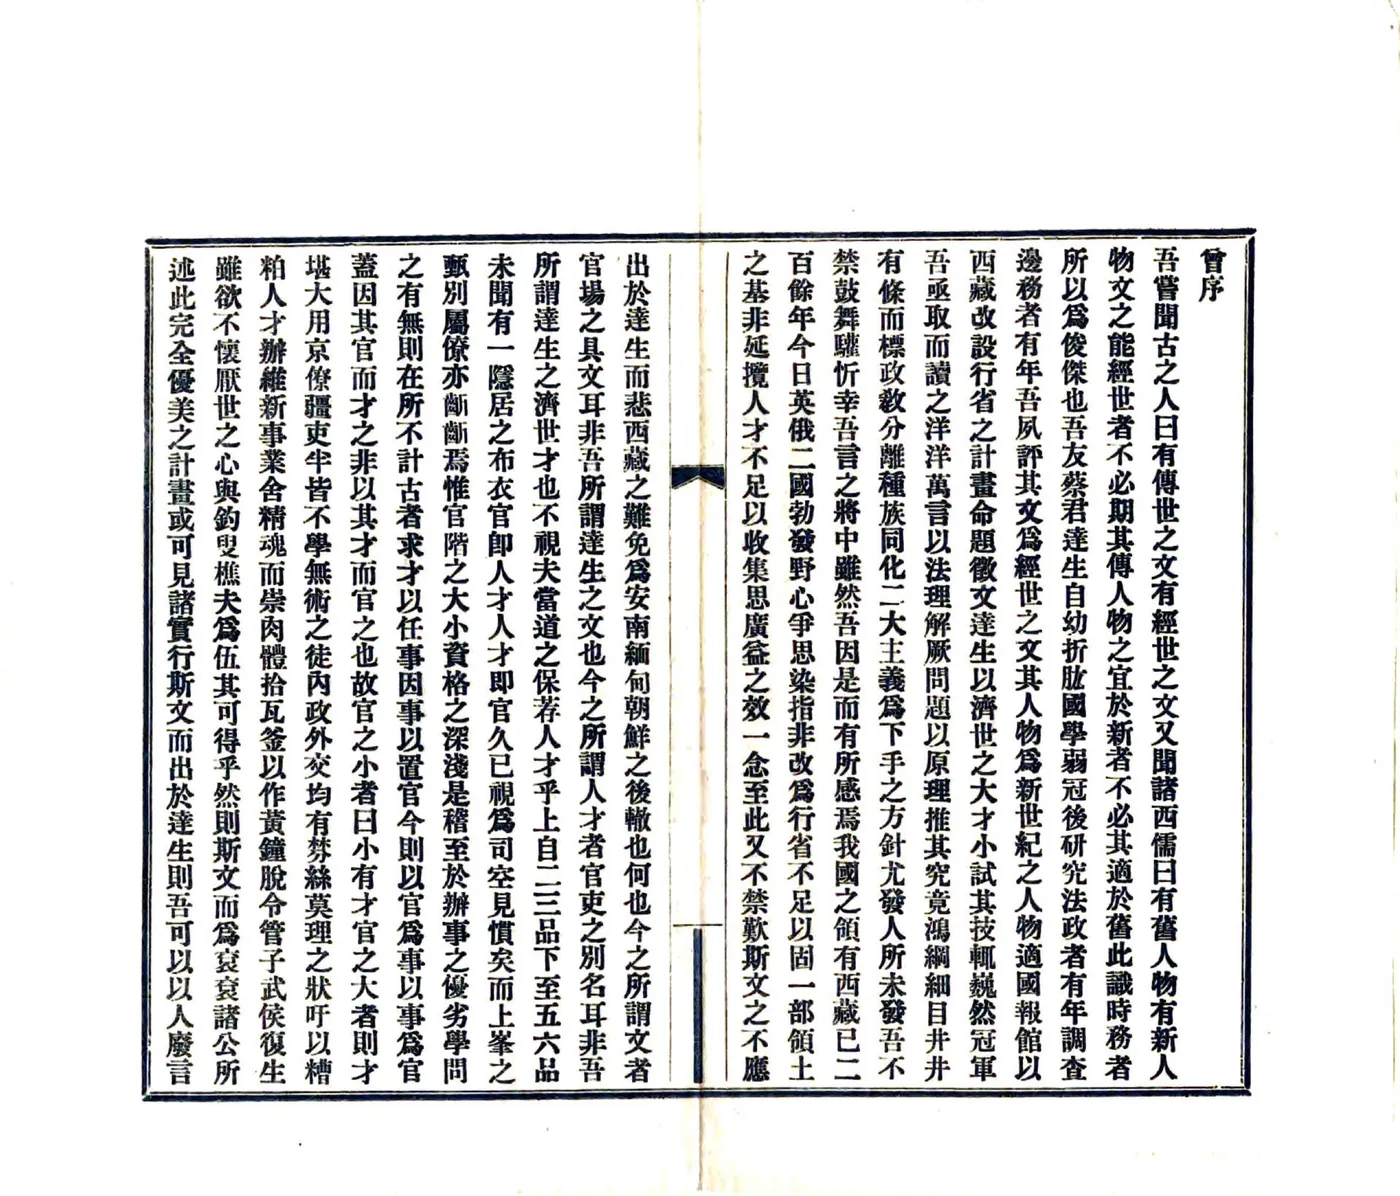 曾序
吾嘗聞古之人曰有傳世之文有經世之文又聞諸西儒曰有舊人物有新人
物文之能經世者不必期其傳人物之宜於新者不必其適於舊此識時務者
所以爲俊傑也吾友蔡君達生自幼折肱國學弱冠後研究法政者有年調查
邊務者有年吾夙評其文爲經世之文其人物爲新世紀之人物適國報館以
西藏改設行省之計畫命題徵文達生以濟世之大才小試其技輒巍然冠軍
吾亟取而讀之洋洋萬言以法理解厥問題以原理推其究竟鴻綱細目井井
有條而標政敎分離種族同化二大主義爲下手之方針尤發人所未發吾不
禁鼓舞驩忻幸吾言之將中雖然吾因是而有所感焉我國之領有西藏已二
百餘年今日英俄二國勃發野心爭思染指非改爲行省不足以固一部領土
之基非延攬人才不足以收集思廣益之效一念至此又不禁歎斯文之不應
出於達生而悲西藏之難免爲安南緬甸朝鮮之後轍也何也今之所謂文者
官場之具文耳非吾所謂達生之文也今之所謂人才者官吏之別名耳非吾
所謂達生之濟世才也不視夫當道之保荐人才乎上自二三品下至五六品
未聞有一隱居之布衣官卽人才人才即官久已視爲司空見慣矣而上峯之
甄別屬僚亦斷斷焉惟官階之大小資格之深淺是稽至於辦事之優劣學問
之有無則在所不計古者求才以任事因事以置官今則以官爲事以事爲官
蓋因其官而才之非以其才而官之也故官之小者曰小有才官之大者則才
堪大用京僚疆吏半皆不學無術之徒內政外交均有棼絲莫理之狀吁以糟
粕人才辦維新事業舍精魂而崇肉體拾瓦釜以作黃鐘脫令管子武侯復生
雖欲不懷厭世之心與釣叟樵夫爲伍其可得乎然則斯文而爲袞袞諸公所
述此完全優美之計畫或可見諸實行斯文而出於達生則吾可以以人廢言